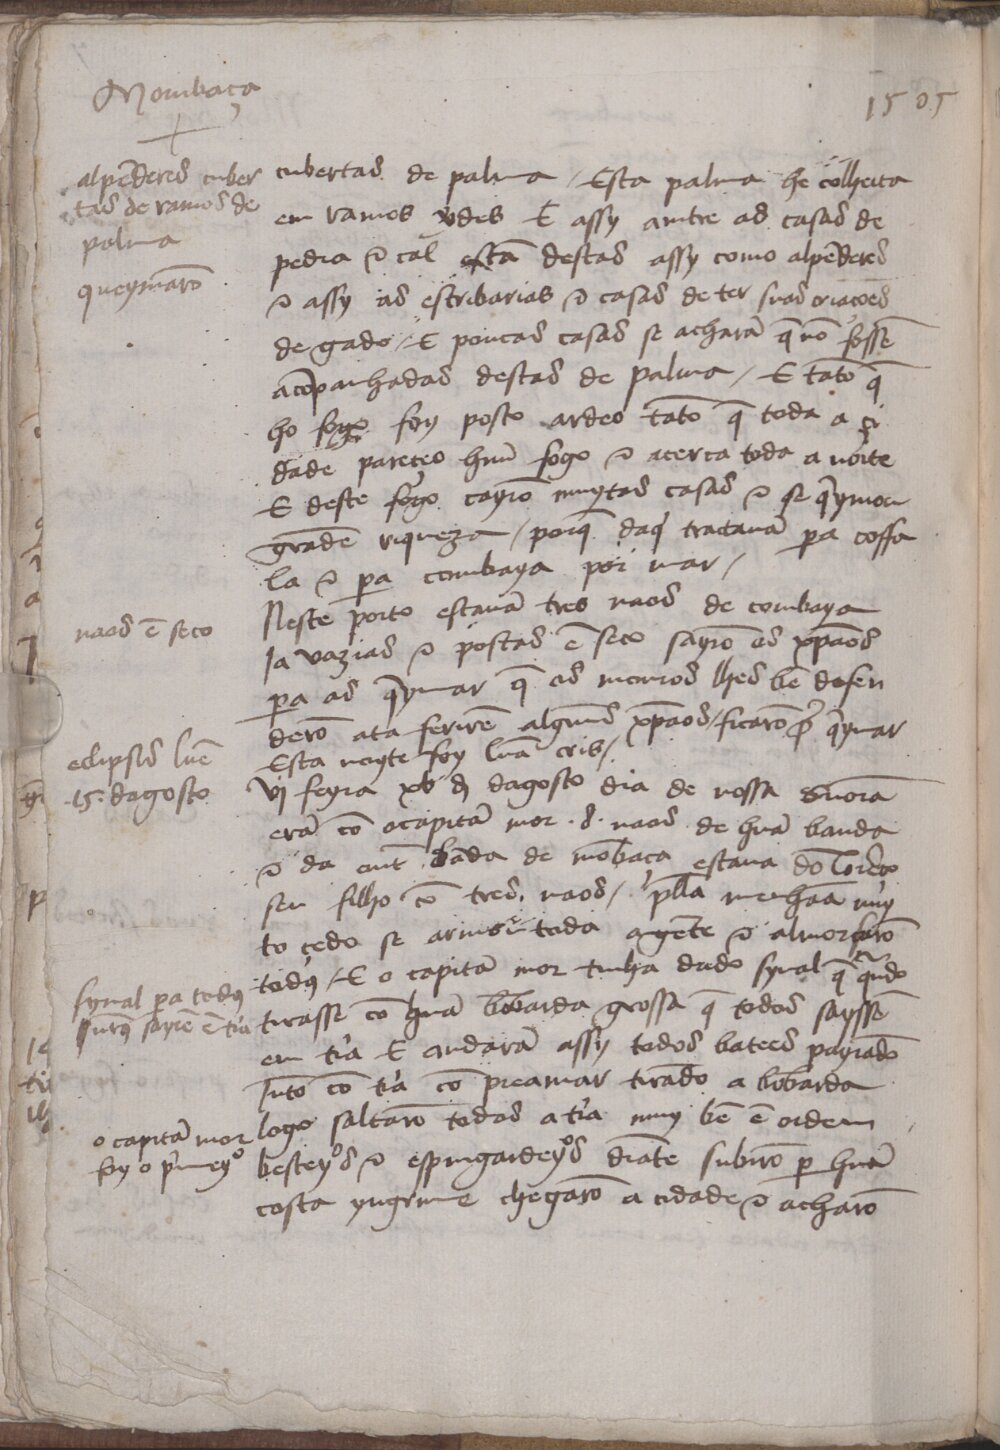 Mombaça
1505
alpẽderes cuber
tas de ramos de
palma
queymarõ
cubertas de palma / Esta palma he colheita
em ramos vdes E assy antre as casas de
pedra e cal estã destas assy como alpẽderes
e assy as estribarias e casas de ter suas criacoẽs
de gado / E poucas casas se acharã q̃ nõ fossẽ
acõpanhadas destas de palma / E tãto q̃
ho fogo foy posto ardeo tãto q̃ toda a çi
dade pareçeo hũu fogo e acerca toda a noite
E deste fogo cayrõ muytas casas e se q̃ymou
grãde riqueza / porq̃ daq̃ tractauã pa coffa
la e pa combaya por mar /
naos ẽ seco
Neste porto estauã tres naos de combaya
Ia vazias e postas ẽ seco sayrõ os xp̃aos
pa as q̃ymar q̃ os mouros lhes bẽ defen
derõ ata ferirẽ algũus xp̃aos / ficarõ por q̃ymar
eclipsis lune
15. dagosto
Esta noyte foy lũa cris /
Vj feyra xb ds dagosto dia de nossa señora
erã cõ o capitã mor .8. naos de hũa banda
e da out bãda de mõbaça estaua dõ Lorẽço
seu filho cõ tres naos / pella menhãa muy
to çedo se armou toda a gẽte e almorçarõ
synal pa todos
iuntos sayrẽ ẽ tr̃a
todos / E o capitã mor tinha dado synal q̃ quãdo
tirasse cõ hũa bõbarda grossa q̃ todos sayssẽ
em tr̃a E andarã assy todos batees payrãdo
Iũto cõ tr̃a cõ preamar tirãdo a bõbarda
o capitã mor
foy o p̃meyro
logo saltarõ todos a tr̃a muy bẽ ẽ ordem
besteyos e espingardeyos diãte subirõ per hũa
costa yngrime chegarõ a cidade e acharõ